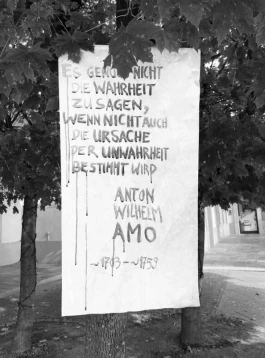 ES GENÜGT NICHT
DIE WAHRHEIT
ZU SAGEN,
WENN NICHT AUCH
DIE URSACHE
DER UNWAHRHEIT
BESTIMMT WIRD
ANTON
WILHELM
AMO
~1703 - ~1759